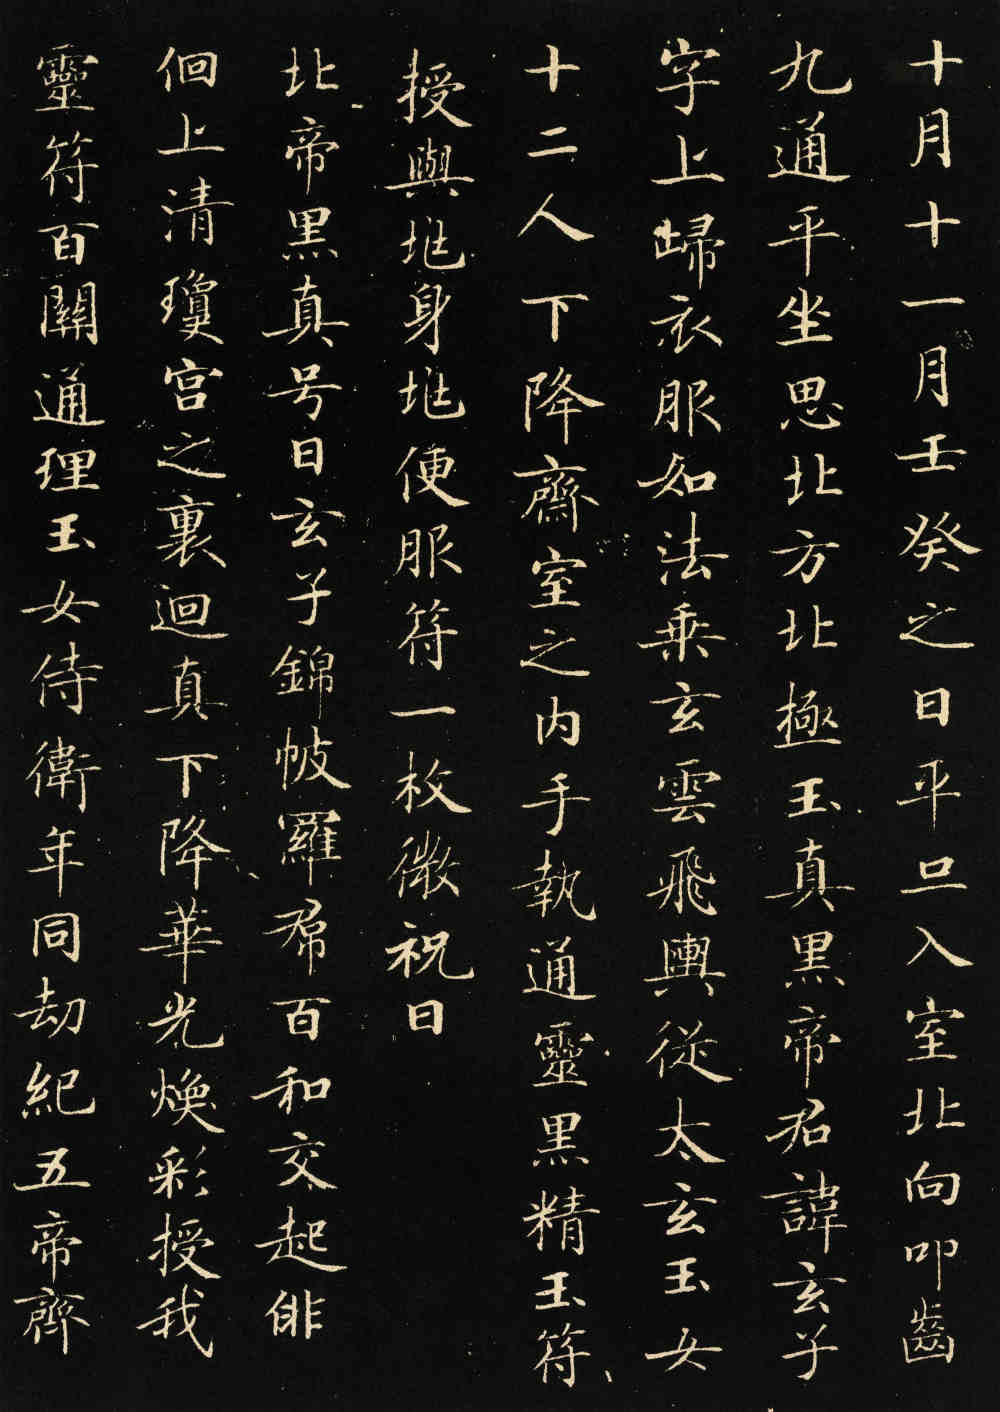 十月十一月壬癸之日平旦入室北向叩齒
九通平坐思北方北極玉真黑帝君諱玄子
字上歸衣服如法乘玄雲飛輿從太玄玉女
十二人下降齋室之内手執通靈黑精玉符
授與兆身兆便服符一枚微祝曰
北帝黑真号曰玄子錦帔羅帬百和交起俳
佪上清瓊宫之裏迴真下降華光煥彩授我
靈符百關通理玉女侍衛年同劫紀五帝齊